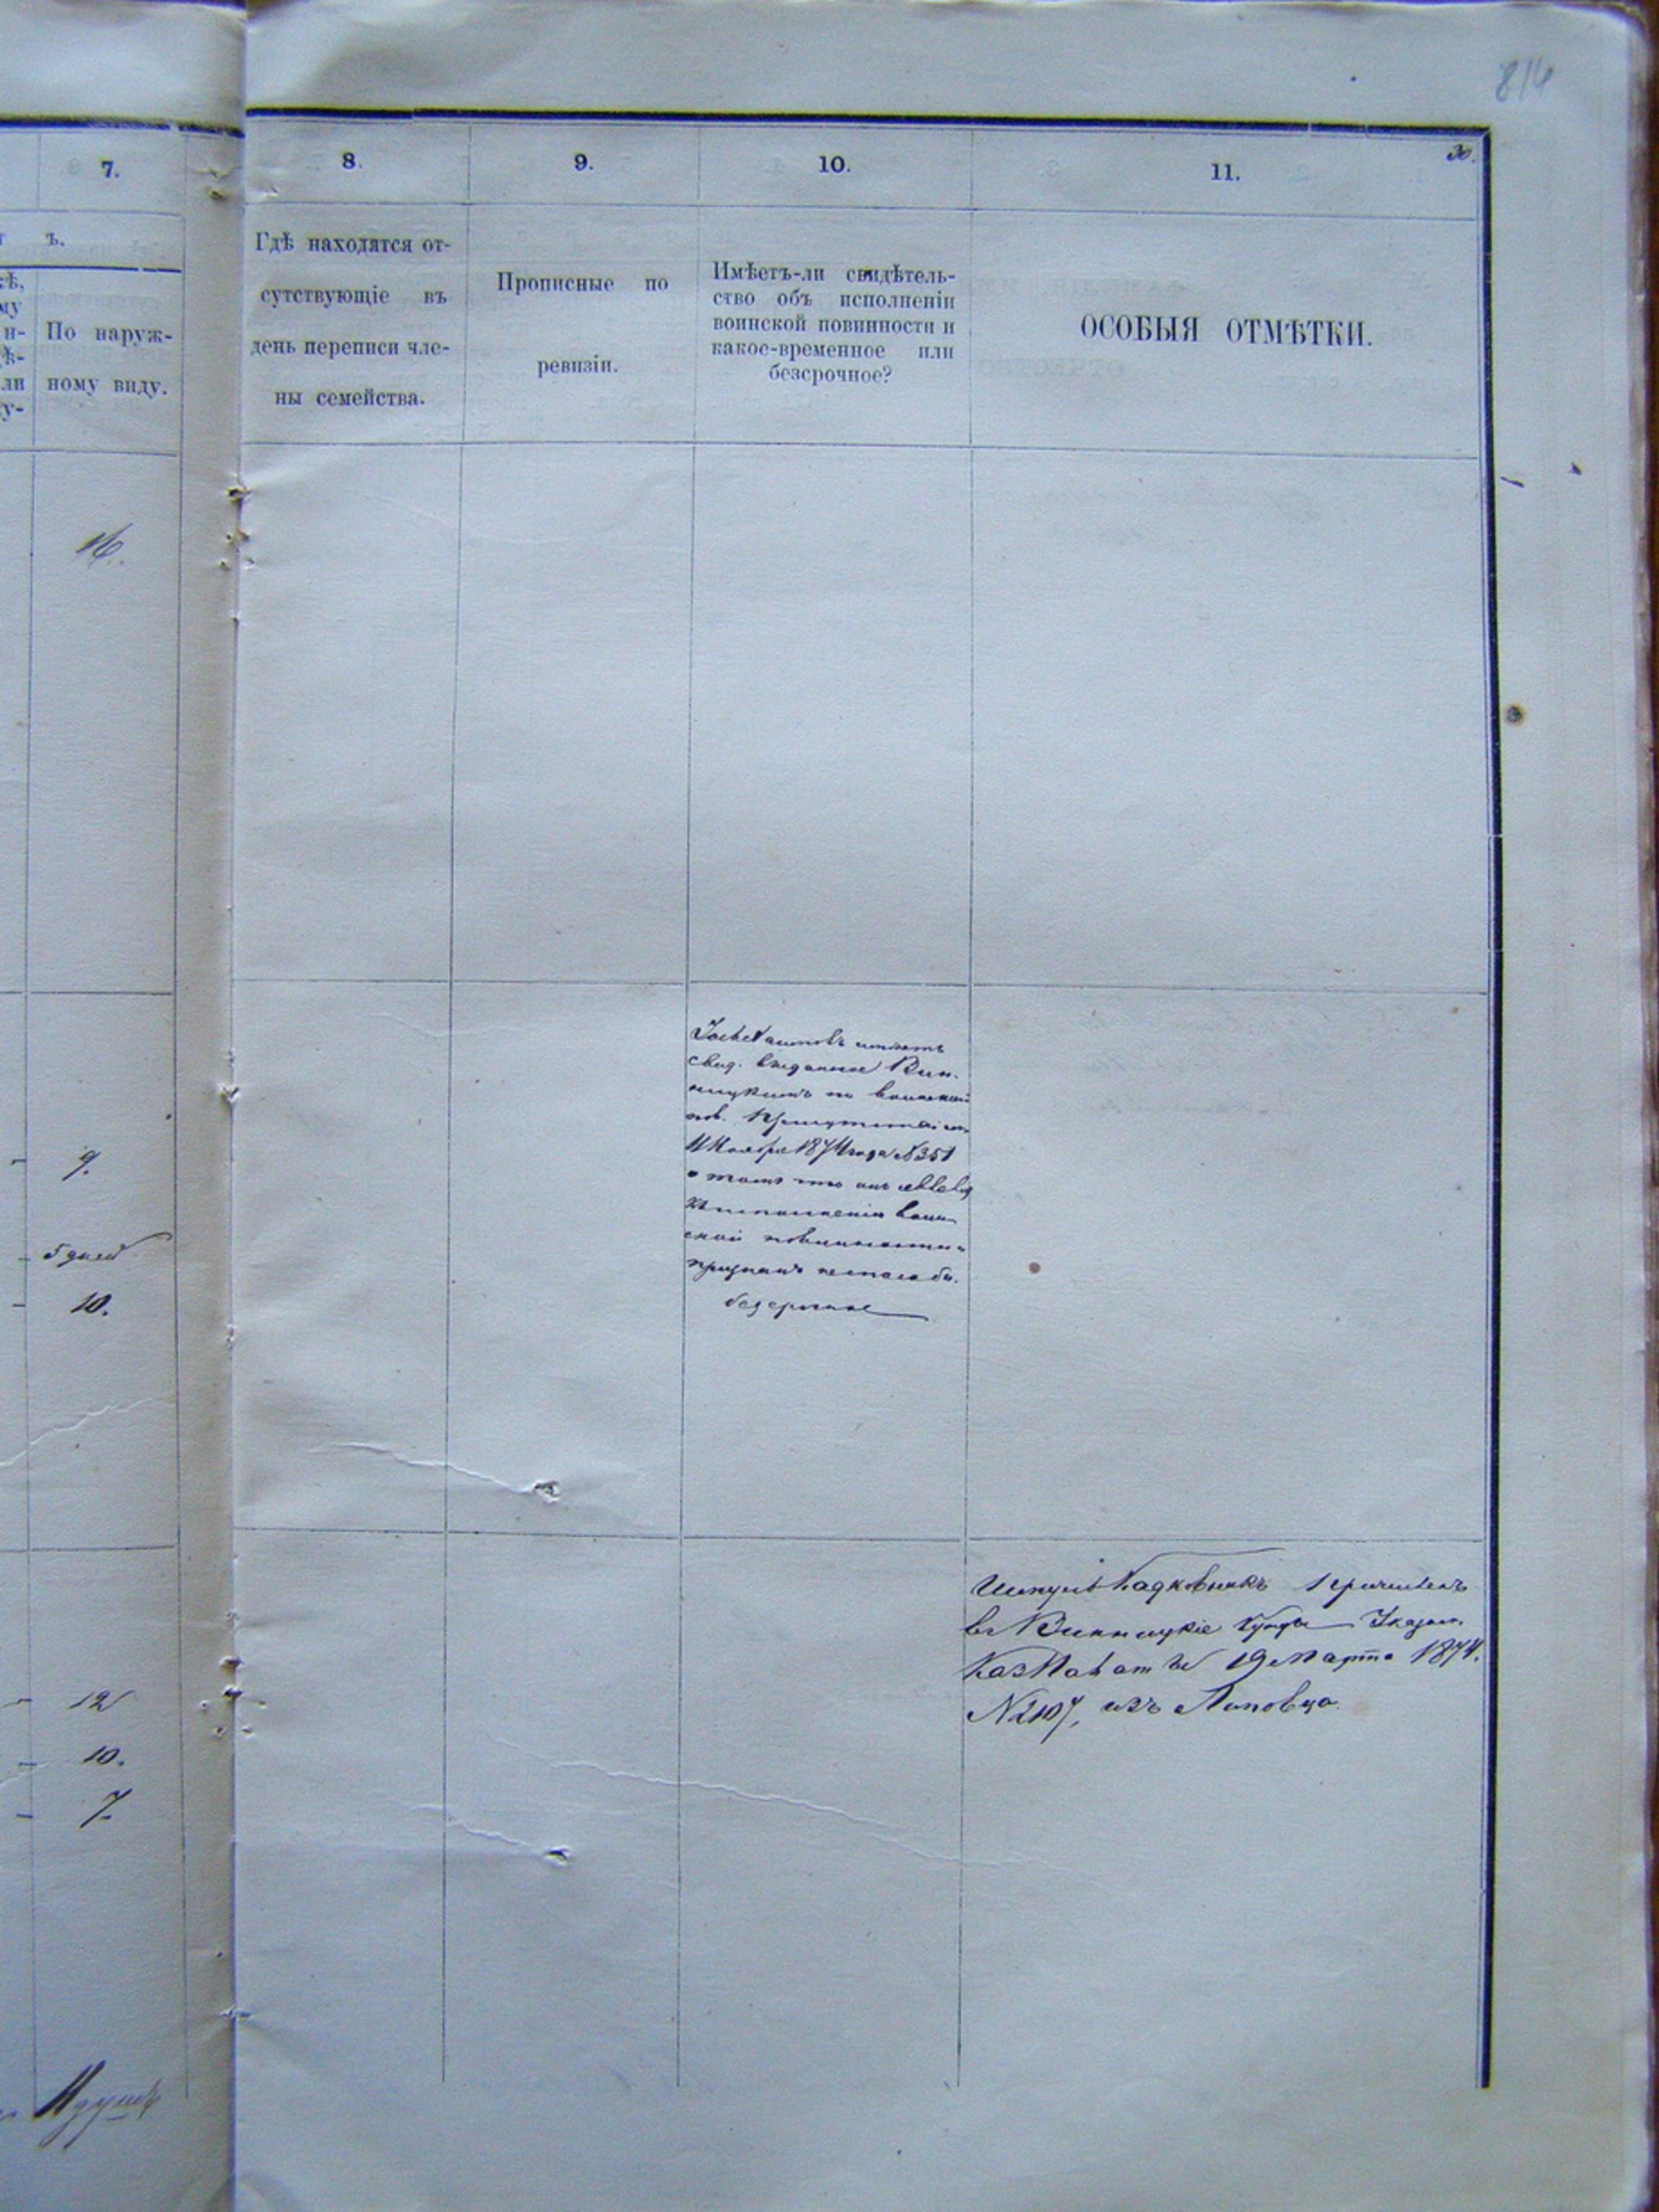 814
30.
7.
8.
9.
10.
11.
ъ.
По наруж-
ному виду.
Гдѣ находятся от-
сутствующіе въ
день переписи чле-
ны семейства.
Прописные по
ревизіи.
Имѣетъ-ли свидѣтель-
ство объ исполненіи
воинской повинности и
какое-временное или
безсрочное?
ОСОБЫЯ ОТМѢТКИ.
16.
имѣетъ
свид. выданное Вин-
ницкимъ по воинской
пов. Присутствіемъ
Ноября 1874 года №351
о томъ что онъ явился
къ исполненію воин
ской повинности и
признанъ неспособн.
безсрочное
9.
5 дней
10.
причисленъ
въ Винницкіе Указом.
КазПал отъ 19 Марта 1874.
№ изъ Липовца.
12
10.
7.
душъ